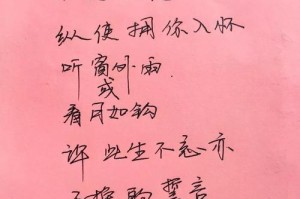 纵使拥你入怀
听窗外雨
或
看月如钩
许此生不忘亦
誓言